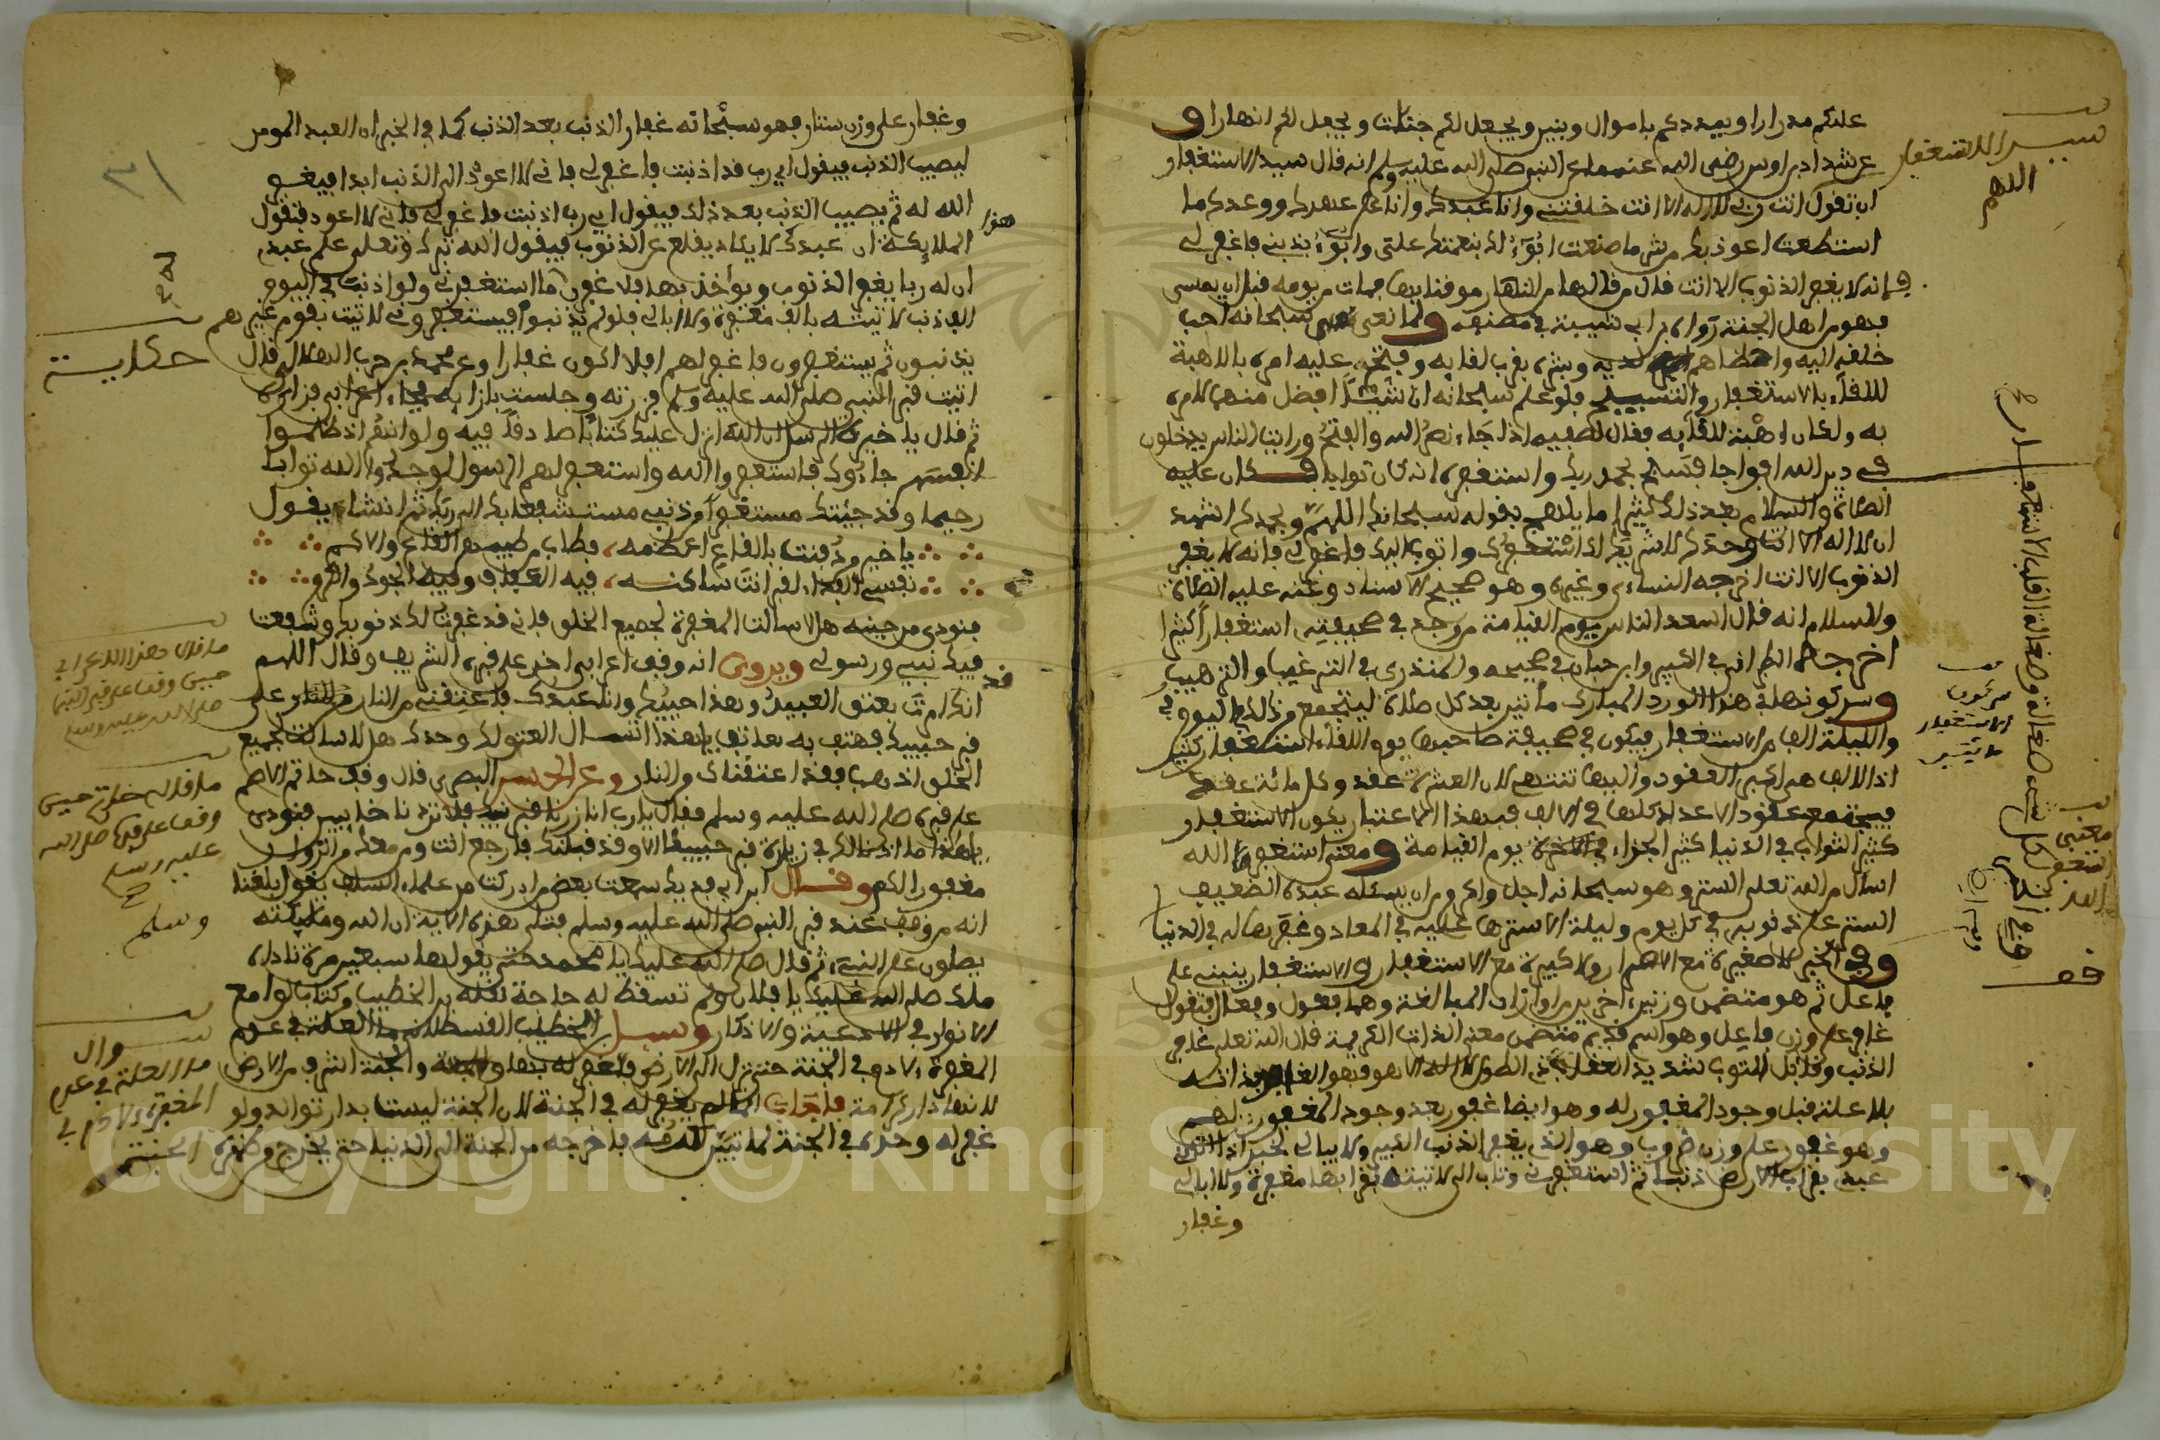 عليكم مدرارا ويمددكم باموال وبنين ويجعل لكم جنات ويجعل لكم انهارا و
عن شداد بن اوس رضى الله عنهما عن النبي صلى الله عليه وسلم انه قال سيد الاستغفار
ان تقول انت ربي لا اله الا انت خلقتني وانا عبدك وانا على عهدك ووعدك ما
استطعت اعوذ بك من شر ما صنعت ابوء لك بنعمتك علي وابوء بذنبي فاغفر لي
فانه لا يغفر الذنوب الا انت قال من قالها من النهار موقنا بها فمات من يومه قبل ان يمسى
فهو من اهل الجنة رواه ابن ابي شيبة في مصنفه ولما نعى سبحانه احب
خلقه اليه لديه وبشره بقرب لقائه وفتحه عليه امره بالاهبة
للقاء بالاستغفار والتسبيح فلو علم سبحانه ان شيئا افضل منهما لامره
به ولكان اهبة للقائه فقال لصفيه اذا جاء نصر الله والفتح ورايت الناس يدخلون
في دين الله افواجا فسبح بحمد ربك واستغفره انه كان توابا فكان عليه
الصلاة والسلام بعد ذلك كثيرا ما يلهج بقوله سبحانك اللهم وبحمدك اشهد
ان لا اله الا انت وحدك لا شريك لك استغفرك واتوب اليك فاغفر لي فانه لا يغفر
الذنوب الا انت اخرجه النساءى وغيره وهو صحيح الاسناد وعنه عليه الصلاة
والسلام انه قال اسعد الناس يوم القيامة من وجد في صحيفته استغفارا كثيرا
اخرجه الطبراني في الكبير وابن حبان في صحيحه والمنذرى في الترغيب والترهيب
وسر كونها في هذا الورد المبارك مأتين بعد كل صلاة ليجتمع من ذلك في اليوم
والليلة الف من الاستغفار فيكون في صحيفة صاحبها يوم اللقاء استغفار كثير
اذ الالف هي اكبر العقود واليها تنتهي لان العشرة عقد وكل مائة عقد
فيجتمع عقود الاعداد كلها في الالف فبهذا الاعتبار يكون الاستغفار
كثير الثواب في الدنيا كثير الجزاء في الاخرة يوم القيامة ومعنى استغفر الله
اسأل من الله تعلى الستر وهو سبحانه اجل واكرم من ان يسئله عبده الضعيف
الستر على ذنوبه في كل يوم وليلة الا سترها عليه في المعاد وغفرها له في الدنيا
وفي الخبر لا صغيرة مع الاصرار ولا كبيرة مع الاستغفار والاستغفار ينبني على
فاعل ثم هو متضمن وزنين اخرين مرادان المبالغة وهما فعول وفعال فتقول
غافر على وزن فاعل وهو اسم قديم متضمن معنى الذات الكريمة قال الله تعلى غافر
الذنب وقابل التوب شديد العقاب ذى الطول لا اله الا هو فهو الغافر بذاته
بلا علة قبل وجود المغفور له وهو ايضا غفور بعد وجود المغفور لهم
وهو غفور على وزن ضروب وهو الذى يغفر الذنب الكبير ولا يبالي لخبر اذا اتاني
عبدى بقراب الارض ذنبا ثم استغفرني وتاب الي لاتيته بقرابها مغفرة ولا ابالي
وغفار
سيد الاستغفار
اللهم
سر كون
الاستغفار
مايتين
معنى
استغفر
الله
وغفار على وزن ستار فهو سبحانه غفار الذنب بعد الذنب كما في الخبر ان العبد المومن
ليصيب الذنب فيقول اى رب قد اذنبت فاغفر لي فاني لا اعود الى الذنب ابدا فيغفر
الله له ثم يصيب الذنب بعد ذلك فيقول اى رب اذنبت فاغفر لي فاني لا اعود فتقول
الملايكة ان عبدك لا يكاد يقلع عن الذنوب فيقول الله تبرك وتعلى علم عبدى
ان له ربا يغفر الذنوب ويواخذ بها فلا غفرن ما استغفرني ولو اذنبت في اليوم
الف ذنب لاتيته بالف مغفرة ولا ابالي فلو لم تذنبوا فيستغفروني لاتيت بقوم غيرهم
يذنبون ثم يستغفرون فاغفر لهم افلا اكون غفارا وعن محمد بن حرب الهلالي قال
اتيت قبر النبي صلى الله عليه وسلم فزرته وجلست بازايه فجاء اعرابي فزاره
ثم قال يا خير الرسل ان الله انزل عليك كتابا صادقا فيه ولو انهم اذ ظلموا
انفسهم جاءوك فاستغفروا الله واستغفر لهم الرسول لوجدوا الله توابا
رحيما وقد جئتك مستغفرا من ذنبي مستشفعا بك الى ربك ثم انشاء يقول
يا خير من دفنت بالقاع اعظمه فطاب من طيبهن القاع والاكم
نفسي الفداء لقبر انت ساكنه فيه العفاف وفيه الجود والكرم
فنودي من حينه هلا سالت المغفرة لجميع الخلق فاني قد غفرت لك ذنوبك وشفعت
فيك نبيي ورسولي ويروى انه وقف اعرابي اخر على قبره الشريف وقال اللهم
انك امرت بعتق العبيد وهذا حبيبك وانا عبدك فاعتقني من النار على
قبر حبيبك فهتف به هاتف يا هذا تسال العتق لك وحدك هلا سالت لجميع
الخلق اذهب فقد اعتقناك من النار وعن الحسن البصرى قال وقف حاتم الاصم
على قبره صلى الله عليه وسلم فقال يا رب انا زرنا قبر نبيك فلا تردنا خايبين فنودى
يا هذا ما اذنا لك في زيارة قبر حبيبنا الا وقد قبلناك فارجع انت ومن معك من الزوار
مغفورا لكم وقال ابن ابي فديك سمعت بعض من ادركت من علماء السلف يقول بلغنا
انه من وقف عند قبر النبي صلى الله عليه وسلم فتلى هذه الاية ان الله وملائكته
يصلون على النبي ثم قال صلى الله عليك يا محمد حتى يقولها سبعين مرة ناداه
ملك صلى الله عليك يا فلان ولم تسقط له حاجة نقله ابن الخطيب وكتاب لوامع
الانوار في الادعية والاذكار وسئل الخطيب القسطلاني ما العلة في عدم
المغفرة لادم في الجنة حتى نزل الى الارض فغفر له بها والجنة اشرف من الارض
لانها دار كرامة فاجاب انما لم يغفر له في الجنة لان الجنة ليست بدار توالد ولو
غفر له وحده في الجنة لما تبين كرمه فاخرجه من الجنة الى الدنيا حتى يخرج من ظهره
هذا
قد
حكاية
ما قال هذا الاعرابي
حين وقف على قبر النبي
صلى الله عليه وسلم
ما قاله حاتم حين
وقف على قبره صلى الله
عليه وسلم
وسلم
سوال
ما العلة في عدم
المغفرة لادم في
الجنة